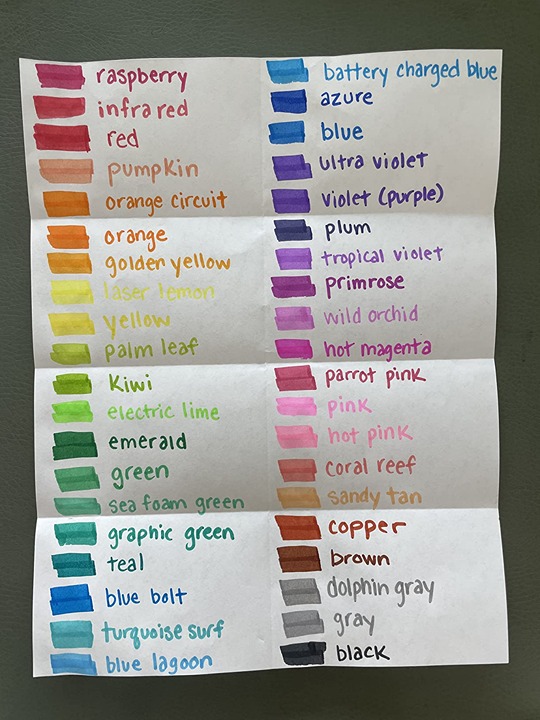 raspberry
infra red
red
pumpkin
orange circuit
orange
golden yellow
laser lemon
yellow
palm leaf
Kiwi
electric lime
emerald
green
sea foam green
graphic green
teal
blue bolt
turquoise surf
blue lagoon
battery charged blue
azure
blue
ultra violet
violet (purple)
plum
tropical violet
primrose
wild orchid
hot magenta
parrot pink
pink
hot pink
coral reef
sandy tan
copper
brown
dolphin gray
gray
black